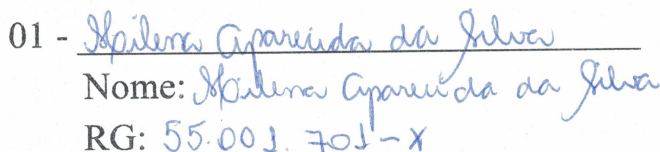 01 - Milena Aparecida da Silva
Nome: Milena Aparecida da Silva
RG: 55.001.701-X